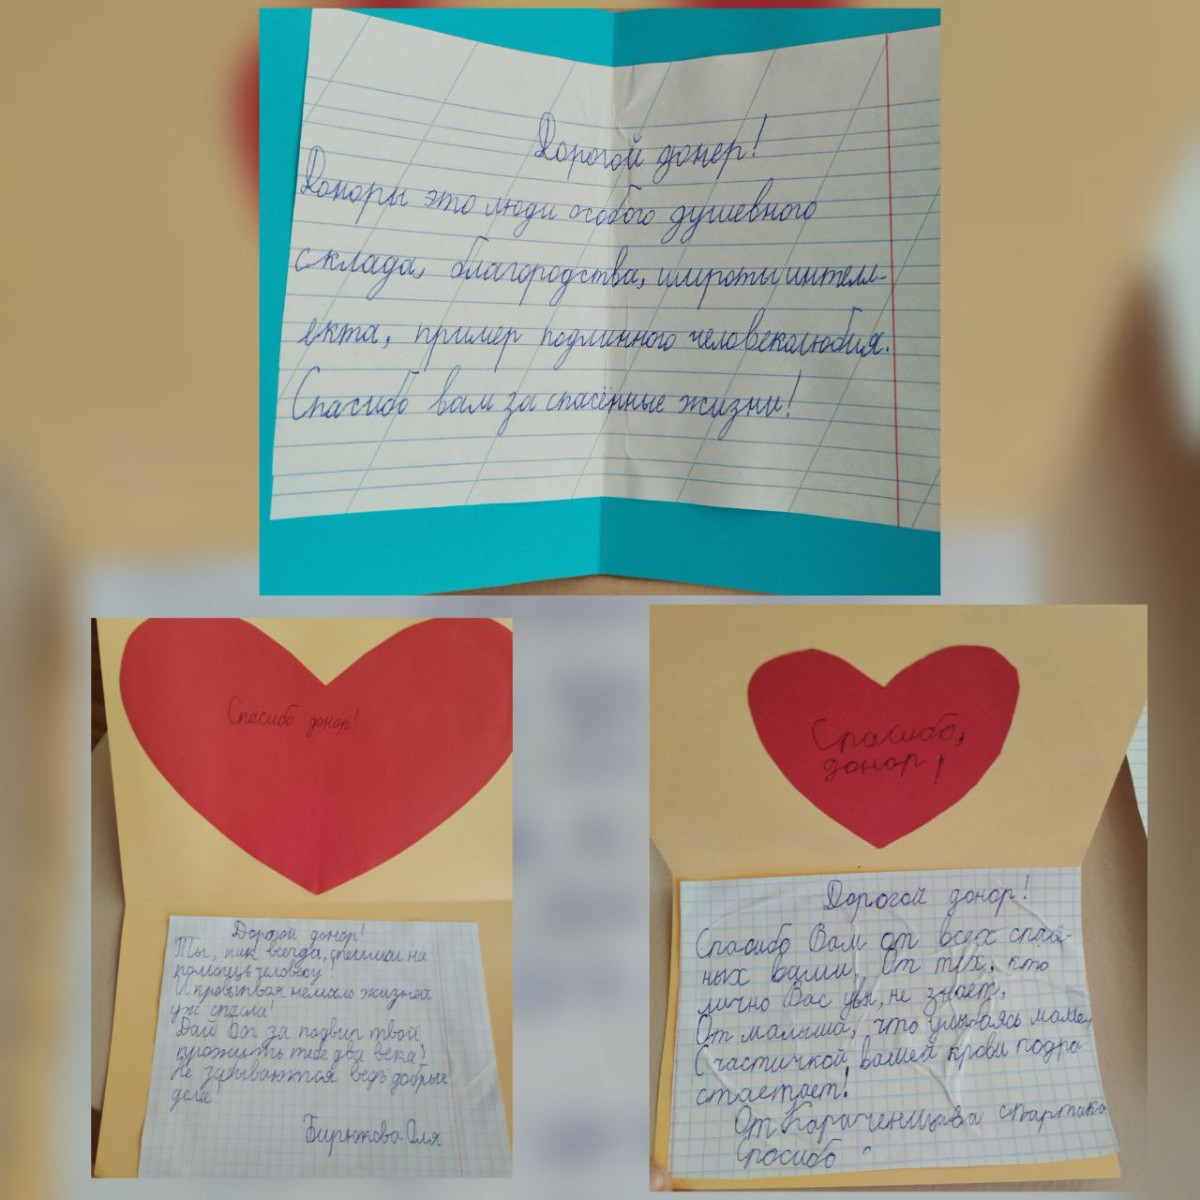 Дорогой донер!
Доноры это люди особого душевного
склада, благородства, широты интелл-
екта, пример подлинного человеколюбия.
Спасибо вам за спасённые жизни!
Спасибо донор!
Дорогой донор!
Ты, как всегда, спешил на
помощь человеку!
И кровь твоя немало жизней
уж спасла!
Дай Бог за подвиг твой
прожить тебе два века!
Не забываются ведь добрые
дела
Бирюкова Оля
Спасибо,
донор!
Дорогой донор!
Спасибо Вам от всех спасё-
ных вами, От тех, кто
лично Вас увы, не знает,
От малыша, что улыбаясь маме,
С частичкой вашей крови подра
стает!
От Спартака
Спасибо